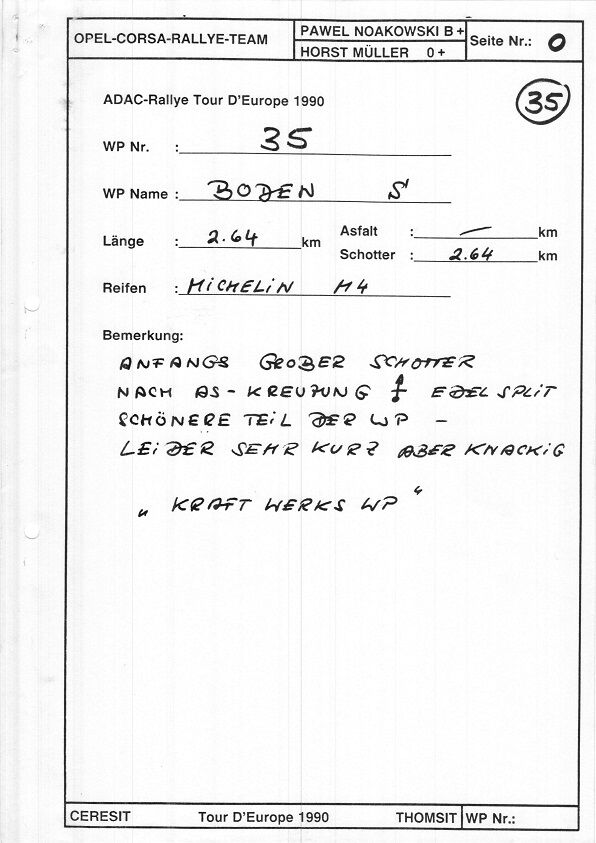 OPEL-CORSA-RALLYE-TEAM
PAWEL NOAKOWSKI B +
HORST MÜLLER 0 +
Seite Nr.: 0
ADAC-Rallye Tour D'Europe 1990
35
WP Nr. : 35
WP Name : BODEN S'
Länge : 2.64 km
Asfalt : — km
Schotter : 2.64 km
Reifen : MICHELIN M4
Bemerkung:
ANFANGS GROBER SCHOTTER
NACH AS-KREUZUNG EDELSPLIT
SCHÖNERE TEIL DER WP -
LEIDER SEHR KURZ ABER KNACKIG
„KRAFTWERKS WP"
CERESIT Tour D'Europe 1990 THOMSIT WP Nr.: